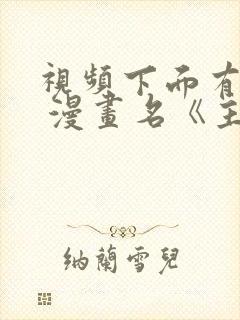 視頻下而有
漫畫名《主
納蘭雪兒